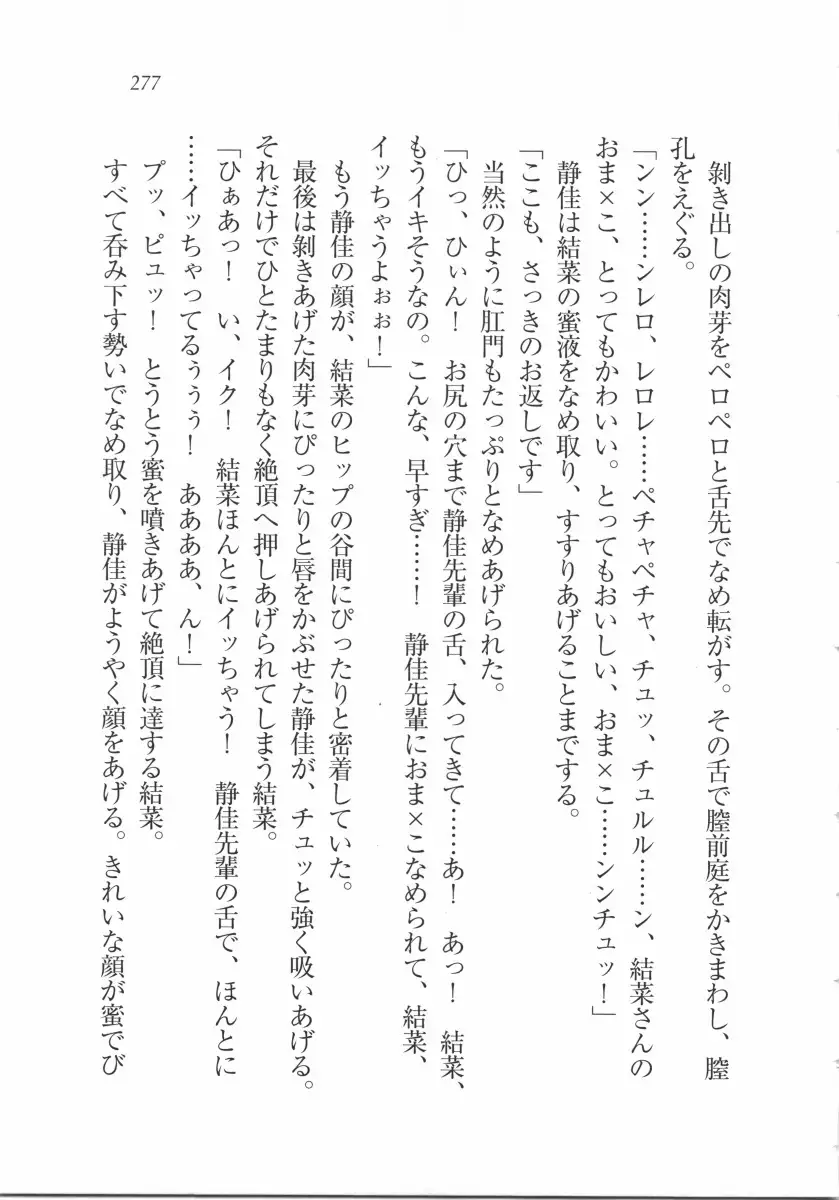 277
剝き出しの肉芽をペロペロと舌先でなめ転がす。その舌で膣前庭をかきまわし、膣
孔をえぐる。
「ンン……ンレロ、レロレ……ペチャペチャ、チュッ、チュルル……ン、結菜さんの
おま×こ、とってもかわいい。とってもおいしい、おま×こ……シンチュッ！」
静佳は結菜の蜜液をなめ取り、すすりあげることまでする。
「ここも、さっきのお返しです」
当然のように肛門もたっぷりとなめあげられた。
「ひっ、ひぃん！　お尻の穴まで静佳先輩の舌、入ってきて……あ！　あっ！　結菜、
もうイキそうなの。こんな、早すぎ……！　静佳先輩におま×こなめられて、結菜、
イッちゃうよぉぉ！」
もう静佳の顔が、結菜のヒップの谷間にぴったりと密着していた。
最後は剝きあげた肉芽にぴったりと唇をかぶせた静佳が、チュッと強く吸いあげる。
それだけでひとたまりもなく絶頂へ押しあげられてしまう結菜。
「ひぁあっ！　い、イク！　結菜ほんとにイッちゃう！　静佳先輩の舌で、ほんとに
……イッちゃってるぅぅぅ！　ああああ、ん！」
プッ、ピュッ！　とうとう蜜を噴きあげて絶頂に達する結菜。
すべて呑み下す勢いでなめ取り、静佳がようやく顔をあげる。きれいな顔が蜜でび